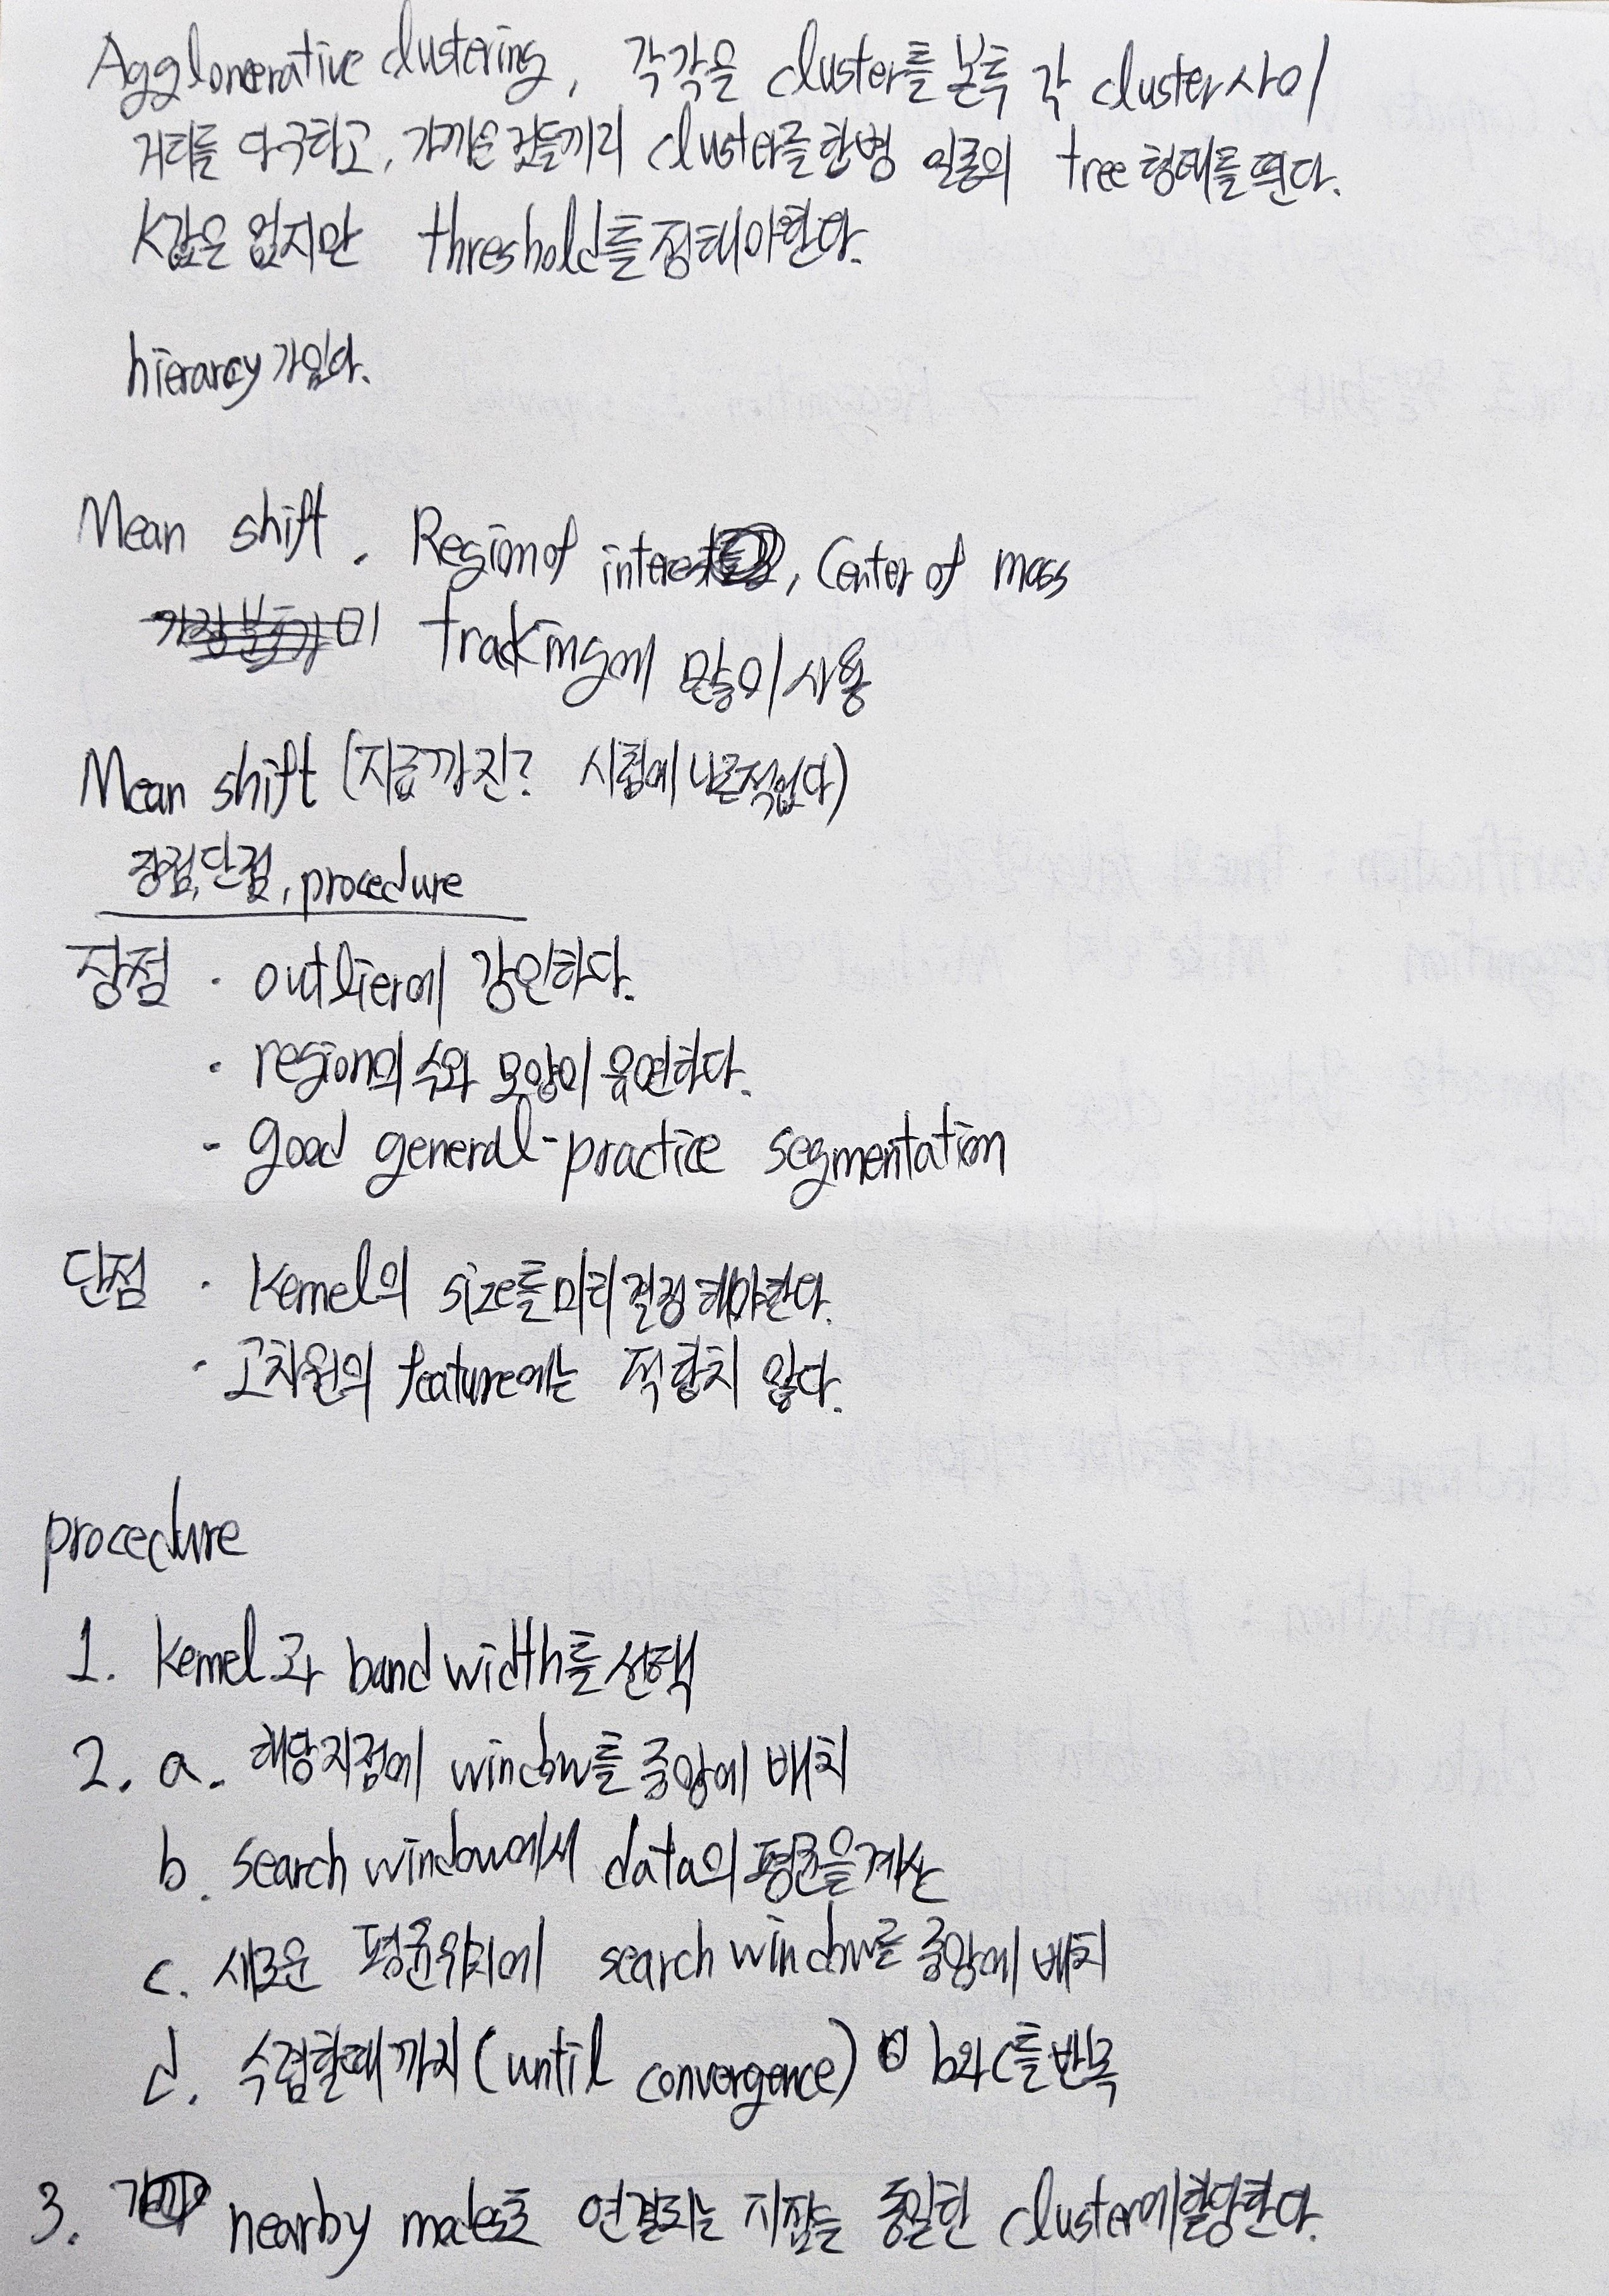 Agglomerative clustering, 각각을 cluster를 본후 각 cluster사이
거리를 다구하고, 가까운 것들끼리 cluster를 한병 일종의 tree형태를 띈다.
K값은 없지만 threshold를 정해야한다.
hierarcy가있다.
Mean shift. Region of interest, Center of mass
tracking에 많이 사용
Mean shift (지금까진? 시험에 나온적없다)
장점, 단점, procedure
장점 · outlier에 강인하다.
· region의 수와 모양이 유연하다.
- good general-practice segmentation
단점 · Kernel의 size를 미리 결정해야한다.
· 고차원의 feature에는 적합치 않다.
procedure
1. Kernel과 band width를 선택
2. a. 해당지점에 window를 중앙에 배치
b. search window에서 data의 평균을 계산
c. 새로운 평균위치에 search window를 중앙에 배치
d. 수렴할때까지 (until convergence) b와 c를 반복
3. nearby modes로 연결되는 지점들 동일한 cluster에 할당한다.